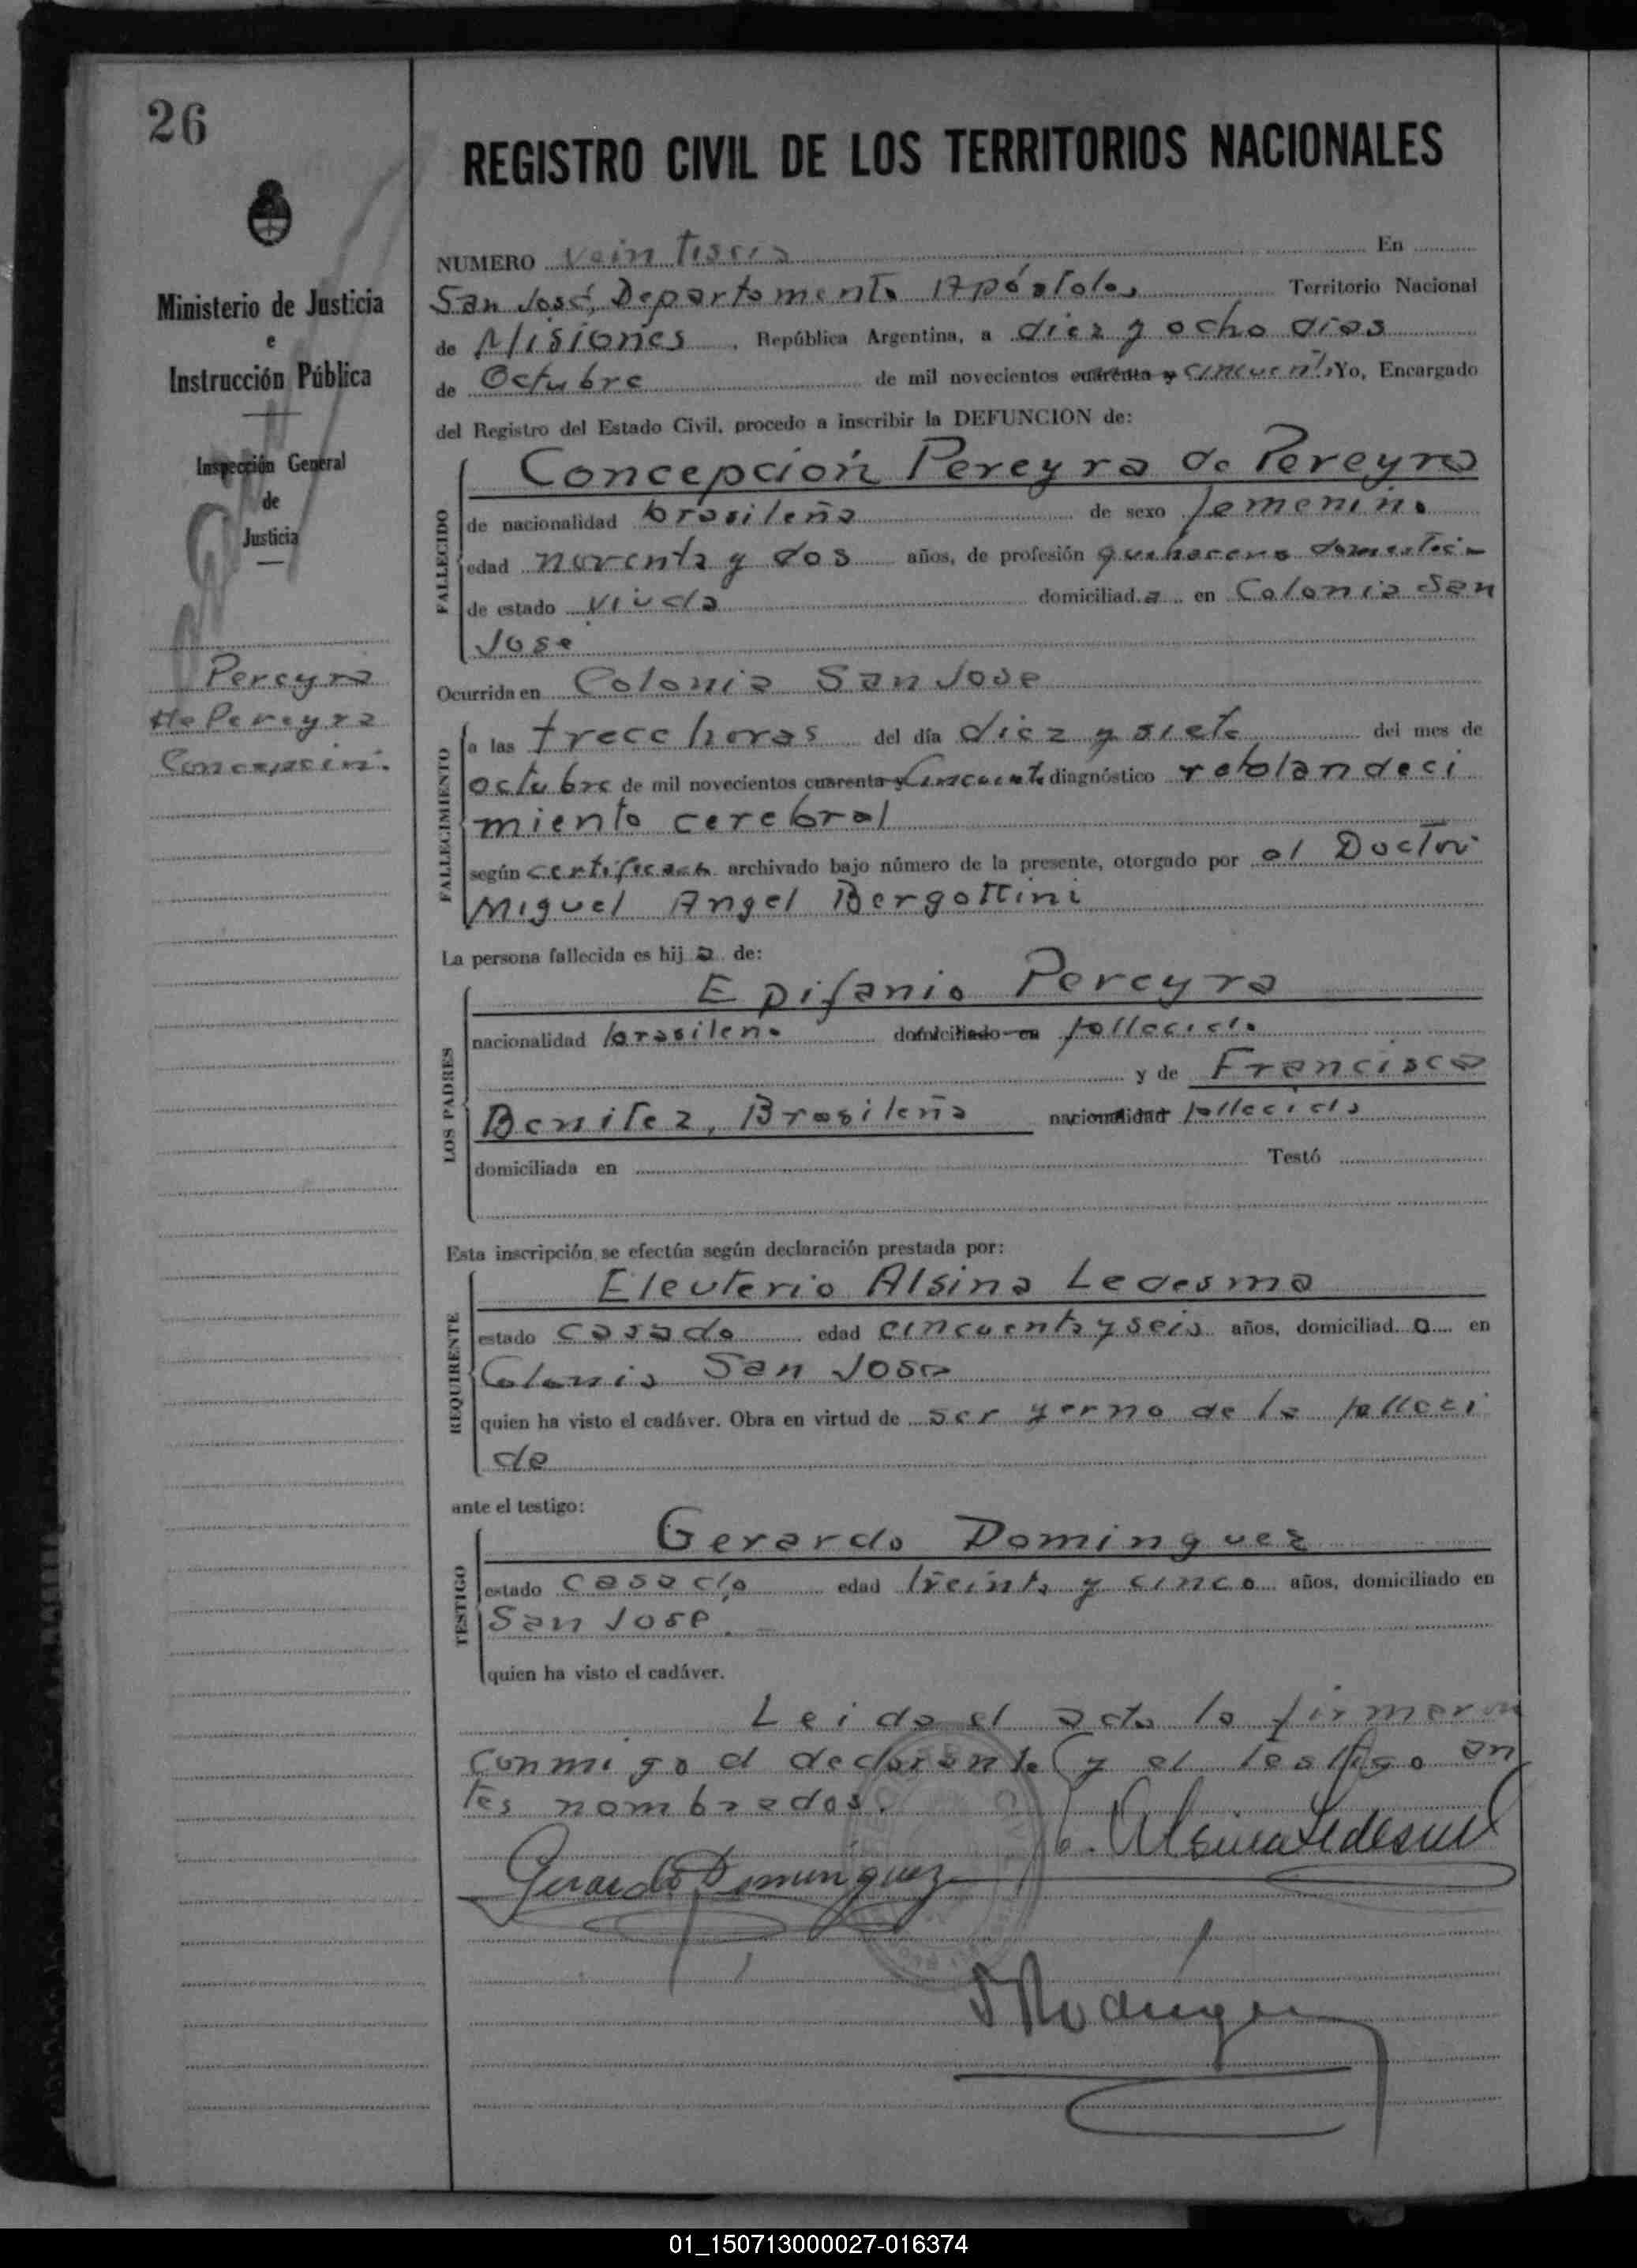 26
REGISTRO CIVIL DE LOS TERRITORIOS NACIONALES
Ministerio de Justicia
e
Instrucción Pública
Inspección General
de
Justicia
Pereyra
de Pereyra
Concepcion.
NUMERO veintiseis En
San José, Departamento Apóstoles Territorio Nacional
de Misiones, República Argentina, a diez y ocho dias
de Octubre de mil novecientos cuarenta y cincuenta, Yo, Encargado
del Registro del Estado Civil, procedo a inscribir la DEFUNCION de:
FALLECIDO
Concepción Pereyra de Pereyra
de nacionalidad brasileña de sexo femenino
edad noventa y dos años, de profesión quehaceres domestic
de estado viuda domiciliad.a en Colonia San
Jose
Ocurrida en Colonia San Jose
FALLECIMIENTO
a las trece horas del día diez y siete del mes de
octubre de mil novecientos cuarenta y Cincuenta diagnóstico reblandeci
miento cerebral
según certificado archivado bajo número de la presente, otorgado por el Doctor
Miguel Angel Bergottini
La persona fallecida es hij a de:
LOS PADRES
Epifanio Pereyra
nacionalidad brasileno domiciliado en fallecido
y de Francisca
Benitez, Brasileña nacionalidad fallecida
domiciliada en Testó
Esta inscripción se efectúa según declaración prestada por:
REQUIRENTE
Eleuterio Alsina Ledesma
estado casado edad cincuenta y seis años, domiciliad. o en
Colonia San Jose
quien ha visto el cadáver. Obra en virtud de ser yerno de la falleci
da
ante el testigo:
TESTIGO
Gerardo Dominguez
estado casado edad treinta y cinco años, domiciliado en
San Jose. -
quien ha visto el cadáver.
Leida el acta la firmaron
conmigo el declarante y el testigo an
tes nombrados.
E. Alsina Ledesma
Gerardo Dominguez
Rodriguez
01_150713000027-016374